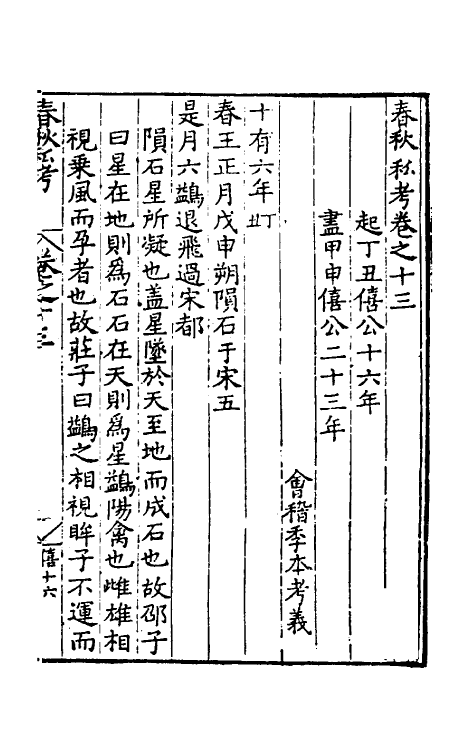 春秋私考卷之十三
起丁丑僖公十六年
盡甲申僖公二十三年
會稽季本考義
十有六年
春王正月戊申朔隕石于宋五
是月六鷁退飛過宋都
隕石星所凝也蓋星墜於天至地而成石也故邵子
曰星在地則爲石石在天則爲星鷁陽禽也雌雄相
視乗風而孕者也故莊子曰鷁之相視眸子不運而
春秋私考 卷之十三 僖十六